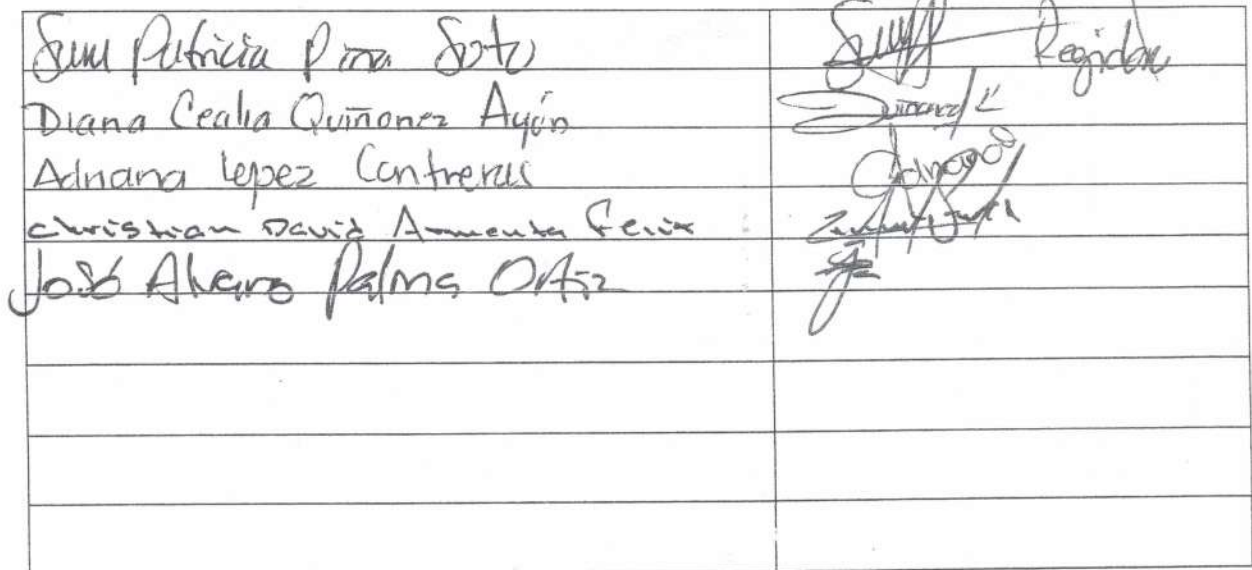 Patricia Pina Soto Regidora
Diana Cecilia Quiñonez Ayón
Adriana Lopez Contreras Adriana
Christian David Armenta Felix
José Alvaro Palma Ortiz